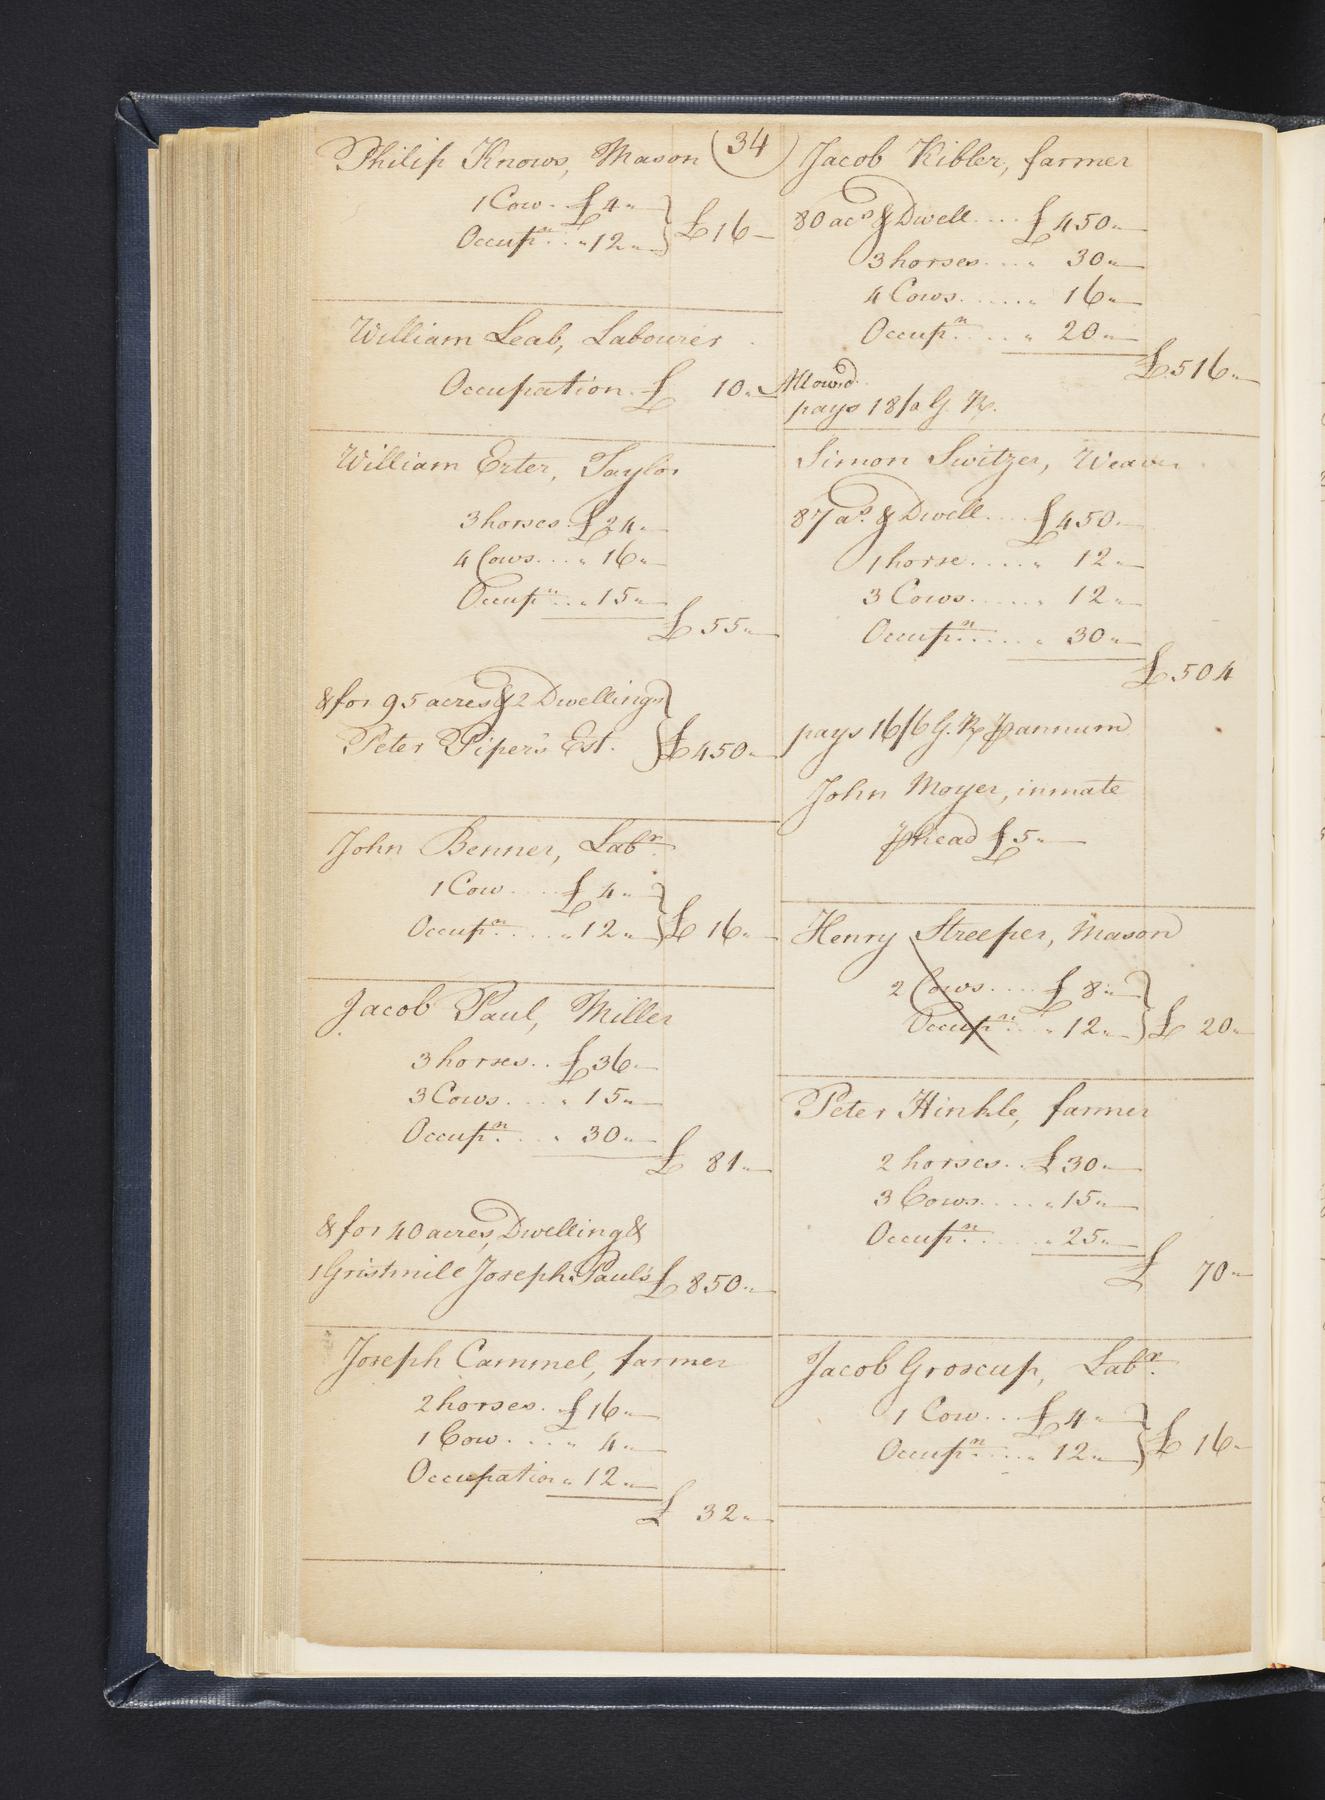 (34)
Philip Knows, Mason
1 Cow .. £ 4 "
Occupn .. " 12 "
£ 16
William Leab, Labourer
Occupation . £ 10 "
William Erter, Taylor
3 horses . £ 24 "
4 Cows ... " 16 "
Occupn ... " 15 "
£ 55 "
& for 95 acres & 2 Dwellings
Peter Piper's Est. £ 450 "
John Benner, Labr.
1 Cow .... £ 4 "
Occupn. .... " 12 "
£ 16 "
Jacob Paul, Miller
3 horses .. £ 36 "
3 Cows ... " 15 "
Occupn. ... " 30 "
£ 81 "
& for 40 acres, Dwelling &
1 Gristmill Joseph Paul's £ 850 "
Joseph Cammel, farmer
2 horses . £ 16 "
1 Cow .... " 4 "
Occupation " 12 "
£ 32 "
Jacob Kibler, farmer
80 acs & Dwell .... £ 450 "
3 horses .... " 30 "
4 Cows ..... " 16 "
Occupn .... " 20 "
£ 516 "
Allow'd
pays 18/ G. R.
Simon Switzer, Weaver
87 as. & Dwell .... £ 450 "
1 horse .... " 12 "
3 Cows ..... " 12 "
Occupn. .... " 30 "
£ 504
pays 16/6 G. R. ⅌ annum
John Moyer, inmate
⅌ head £ 5 "
Henry Streeper, Mason
2 Cows .... £ 8 "
Occupn .. " 12 "
£ 20 "
Peter Hinkle, farmer
2 horses .. £ 30 "
3 Cows .... " 15 "
Occupn. .... " 25 "
£ 70 "
Jacob Groscup, Labr.
1 Cow .. £ 4 "
Occupn .... " 12 "
£ 16 "